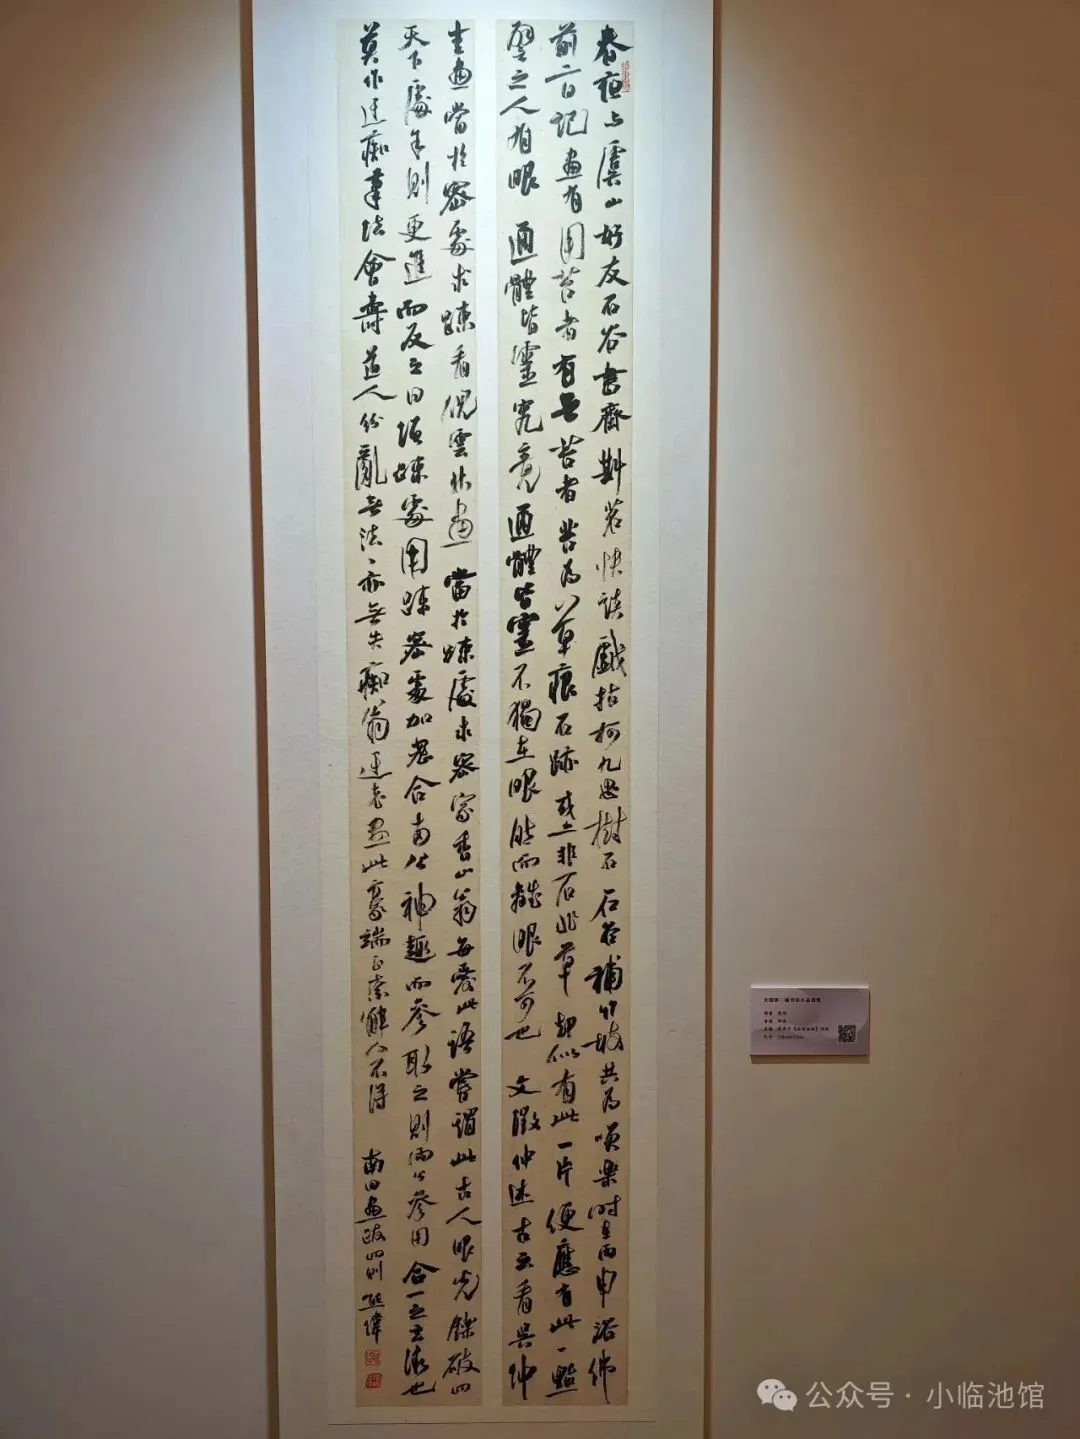 春夜与虞山好友石谷书斋斟茗快谈戲指柯九思樹石石谷補竹坡共为唤樂时在丙申浴佛
前二日记畫有用苔者有无苔者苔为草痕石跡或亦非石非草却似有此一片便應有此一點
譬之人有眼通體皆靈究竟通體皆靈不獨在眼然而離眼不可也文徵仲述古云看吴仲
圭畫當於密處求疎看倪雲林畫當於疎處求密家香山翁每愛此語嘗謂此古人眼光鑠破四
天下處余則更進而反之曰须疎處用疎密處加密合兩公神趣而參取之則兩公參用合一之玄微也
莫作迂癡筆法會壽道人份亂无法法亦无失癡翁迂老畫此豪端正索解人不得
南田畫跋四则
公众号·小临池馆